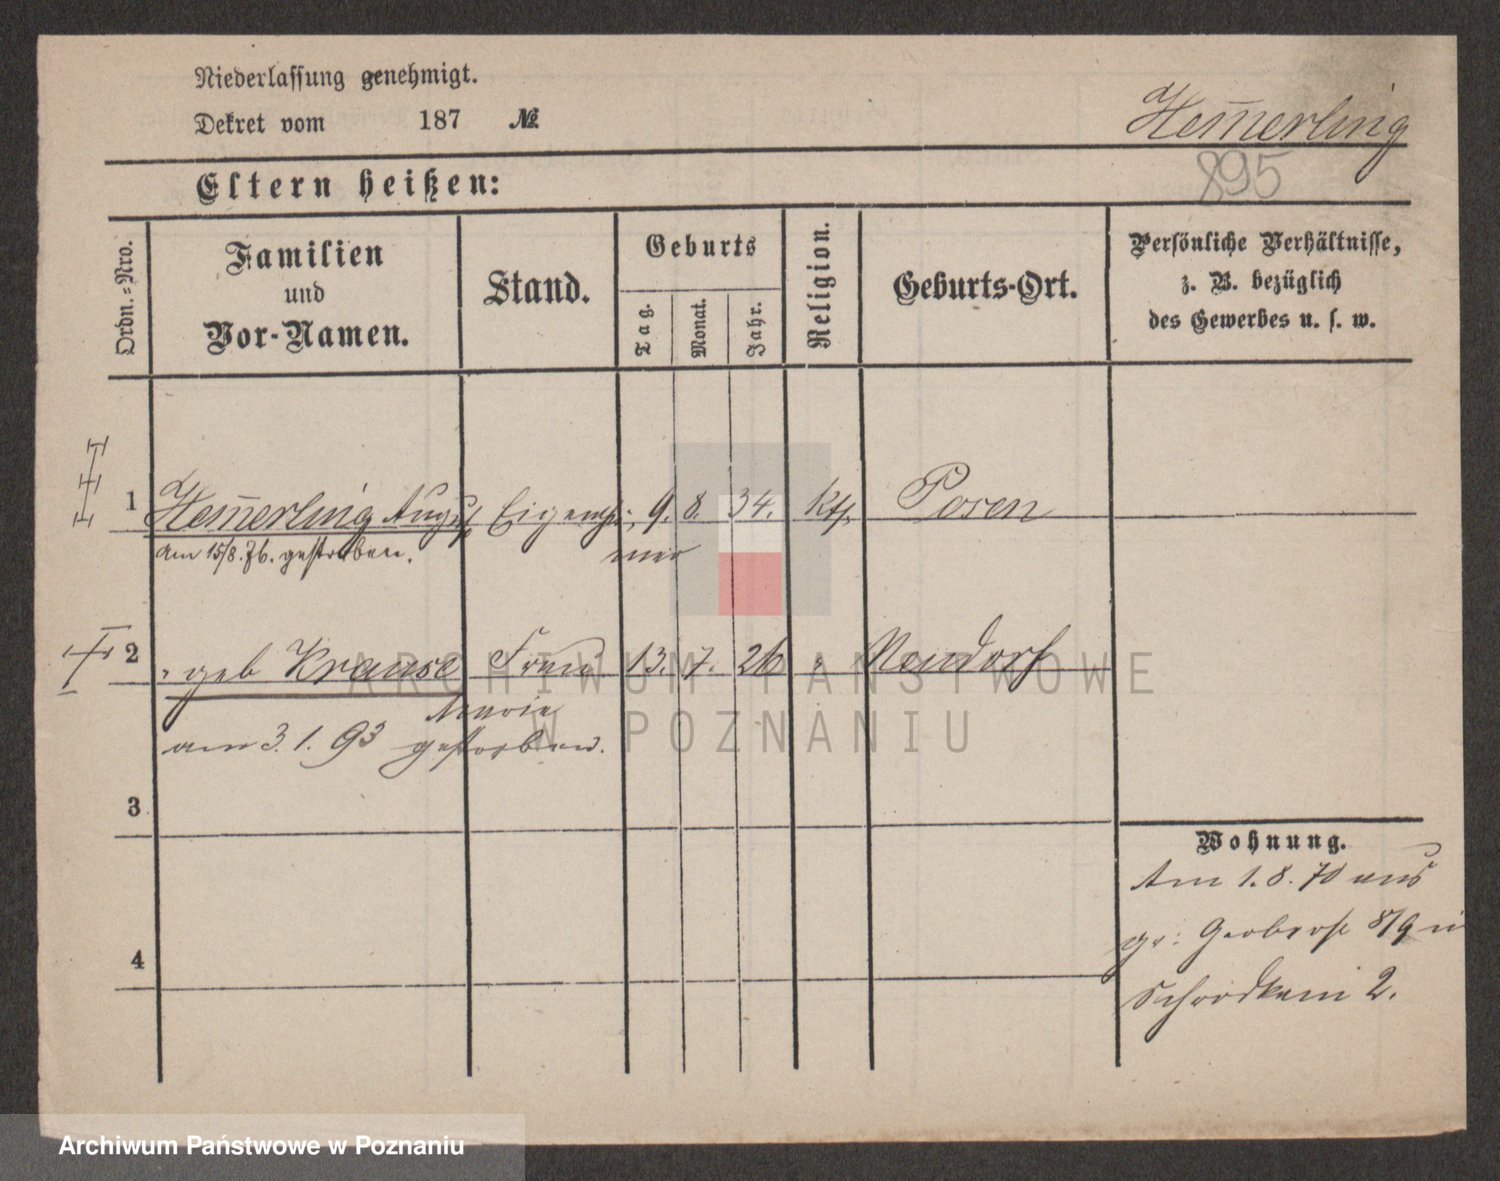 Niederlassung genehmigt.
Dekret vom 187 №
Hem̅erling
895
Eltern heißen:
Ordn.-Nro.
Familien
und
Vor-Namen.
Stand.
Geburts
Tag.
Monat.
Jahr.
Religion.
Geburts-Ort.
Persönliche Verhältnisse,
z. B. bezüglich
des Gewerbes u. s. w.
1 Hem̅erling August Eigenthü- 9. 8. 34. kth. Posen
mer
am 15/8.76. gestorben.
2 " geb Krause Frau 13. 7. 26 " Neudorf
Marie
am 3. 1. 93 gestorben.
3
4
Wohnung.
Am 1. 8. 70 aus
gr: Gerberst 8/9 n
Schrodkam 2.
ARCHIWUM PAŃSTWOWE
W POZNANIU
Archiwum Państwowe w Poznaniu